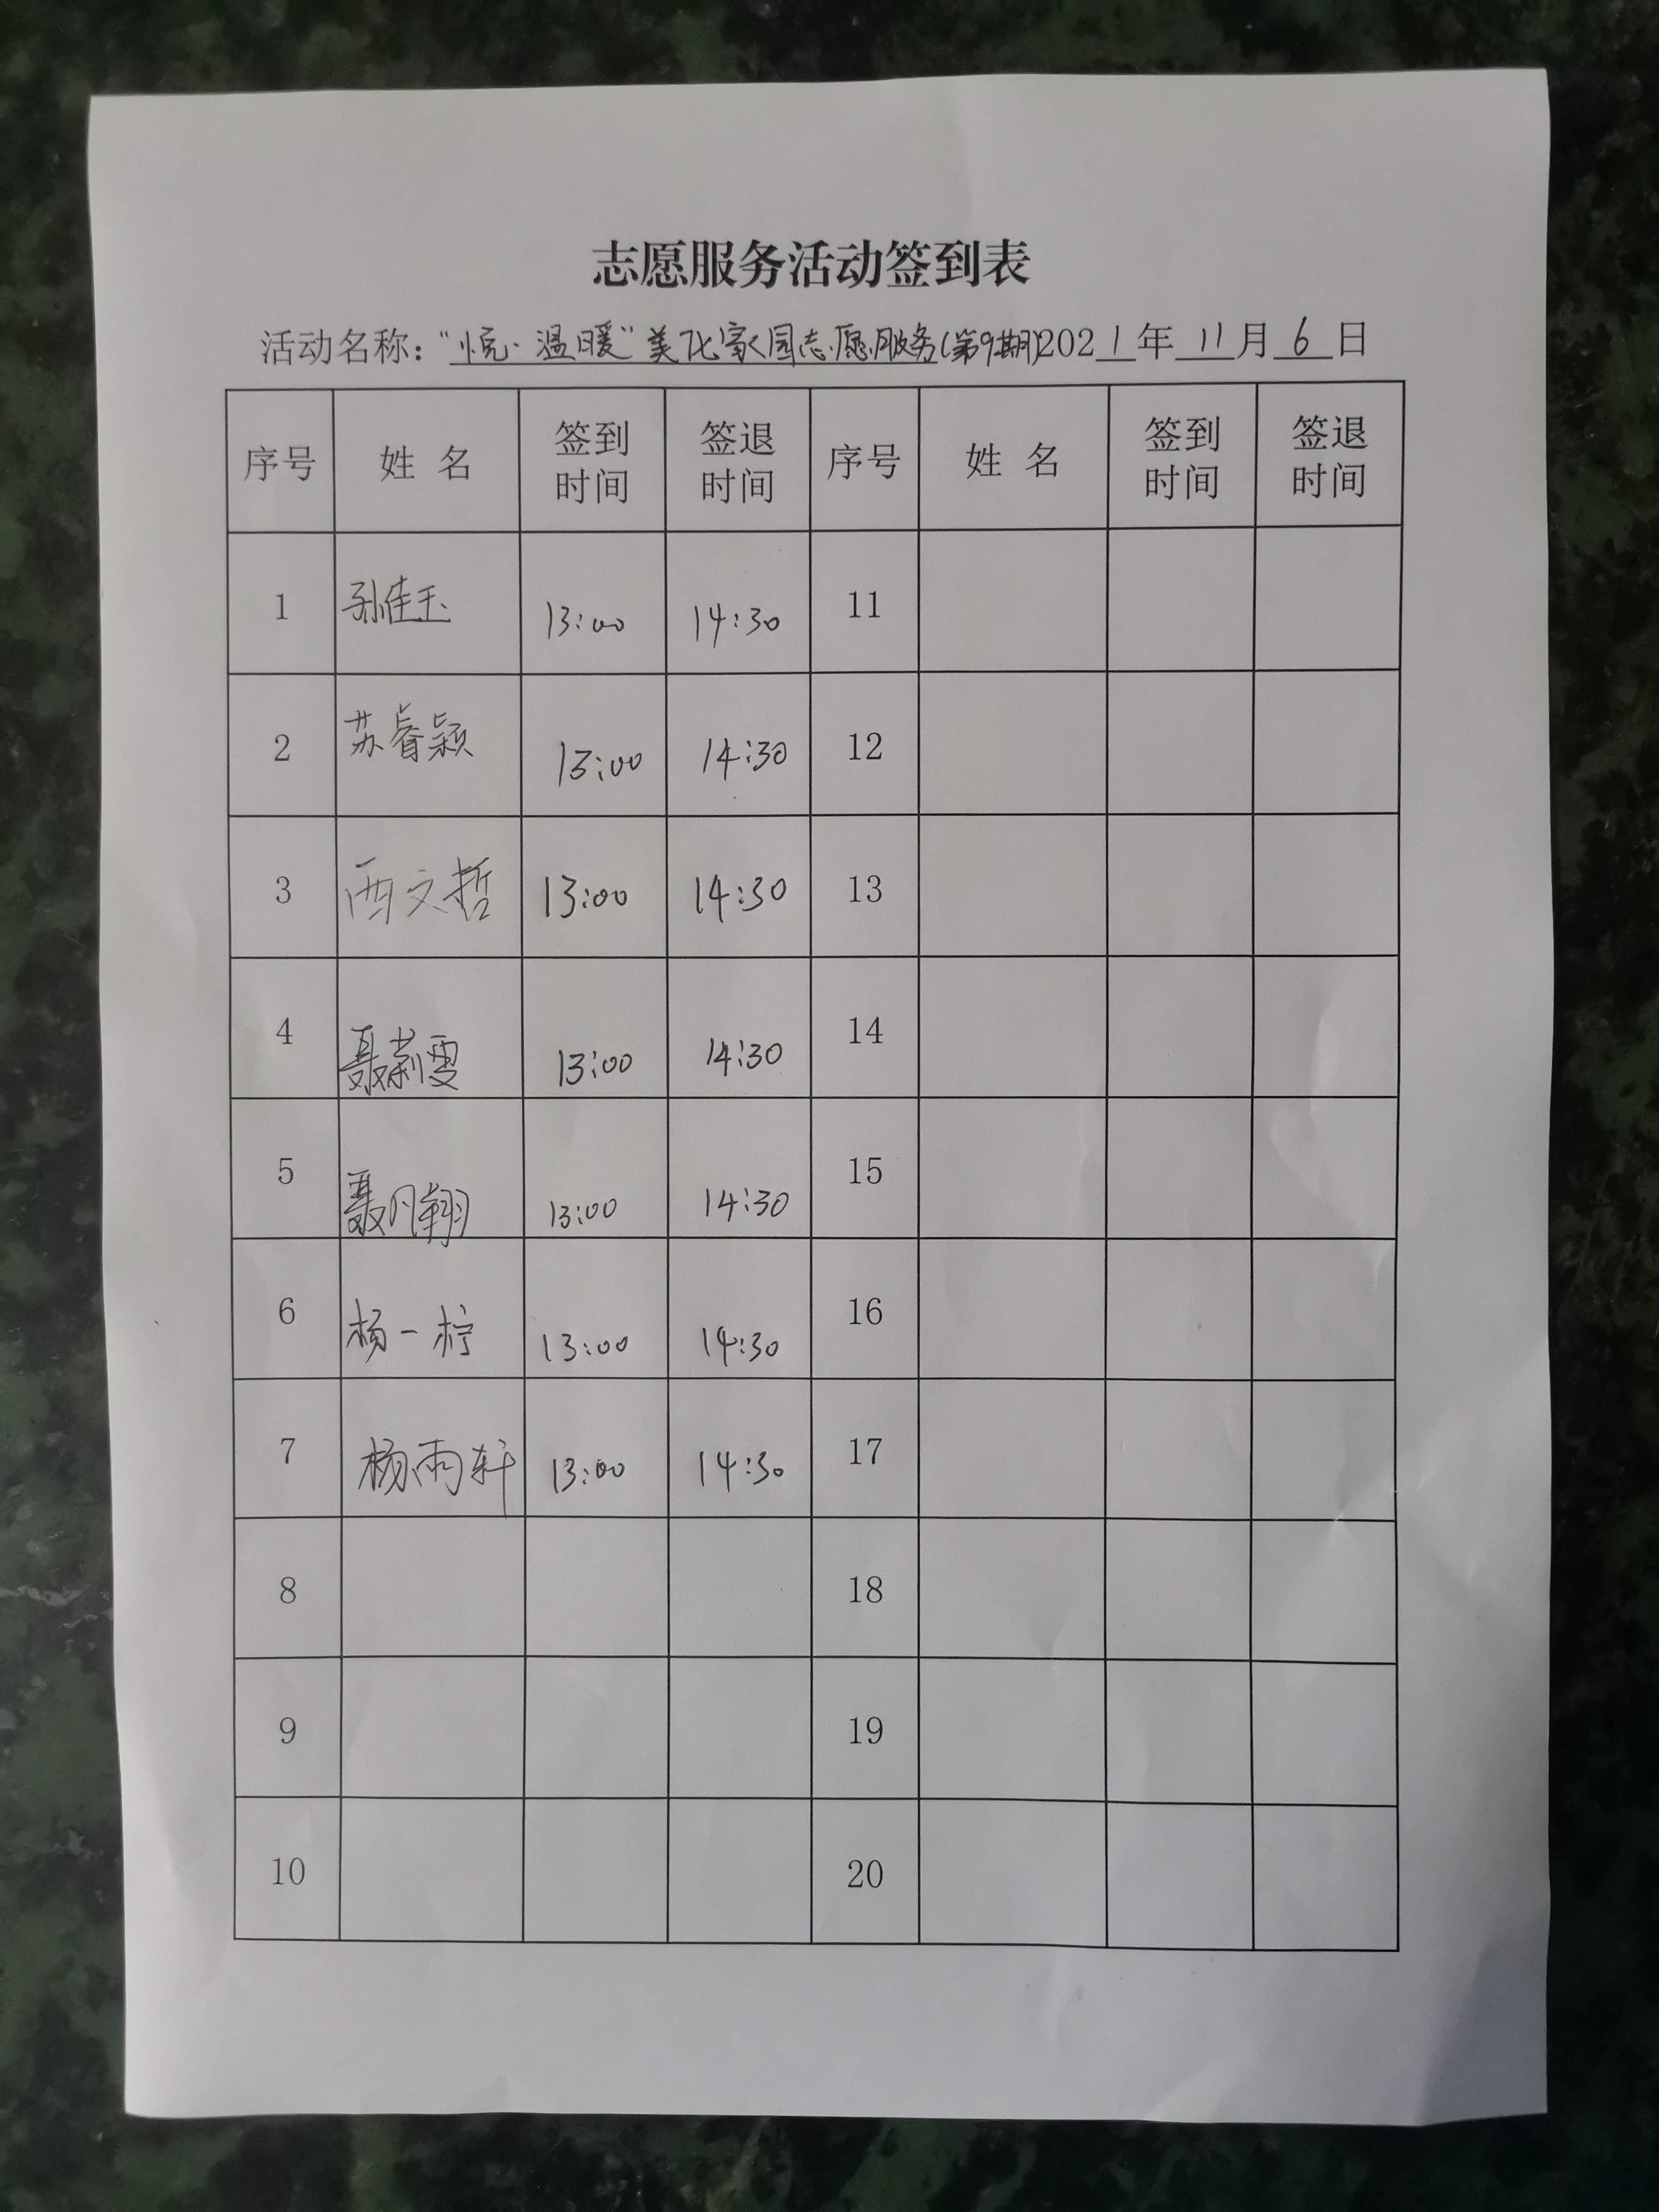 志愿服务活动签到表
活动名称："悦·温暖"美化家园志愿服务(第9期)2021年11月6日
序号 姓名 签到时间 签退时间 序号 姓名 签到时间 签退时间
1 孙佳玉 13:00 14:30 11
2 苏睿颖 13:00 14:30 12
3 西文哲 13:00 14:30 13
4 聂莉雯 13:00 14:30 14
5 聂月翱 13:00 14:30 15
6 杨一柠 13:00 14:30 16
7 杨雨轩 13:00 14:30 17
8 18
9 19
10 20